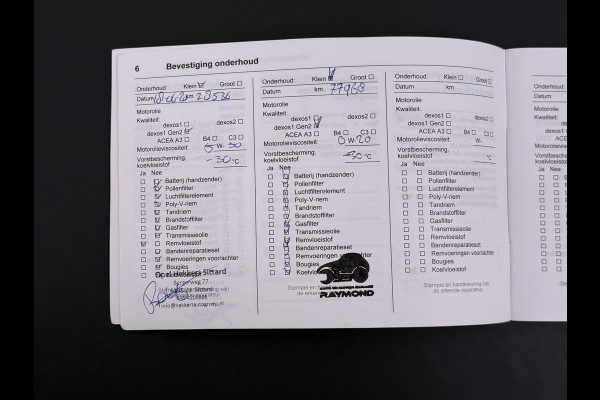 6 Bevestiging onderhoud
Onderhoud: Klein Groot
Datum km 28536
Motorolie
Kwaliteit:
dexos1 dexos2
dexos1 Gen2
ACEA A3 B4 C3
Motorolieviscositeit 0 W- 30
Vorstbescherming.
koelvloeistof -30 °C
Ja Nee
Batterij (handzender)
Pollenfilter
Luchtfilterelement
Poly-V-riem
Tandriem
Brandstoffilter
Gasfilter
Transmissieolie
Remvloeistof
Bandenreparatieset
Remvoeringen voor/achter
Bougies
Opel Hekkert Sittard
Bergerweg 77
Onderhoud: Klein Groot
Datum km 77968
Motorolie
Kwaliteit:
dexos1 dexos2
dexos1 Gen2
ACEA A3 B4 C3
Motorolieviscositeit 0 W- 20
Vorstbescherming.
koelvloeistof -30 °C
Ja Nee
Batterij (handzender)
Pollenfilter
Luchtfilterelement
Poly-V-riem
Tandriem
Brandstoffilter
Gasfilter
Transmissieolie
Remvloeistof
Bandenreparatieset
Remvoeringen
Bougies
Koelvloeistof
RAYMOND
Stempel en
de erkende
Onderhoud: Klein Groot
Datum km
Motorolie
Kwaliteit:
dexos1 dexos2
dexos1 Gen2
ACEA A3 B4 C3
Motorolieviscositeit W-
Vorstbescherming.
koelvloeistof °C
Ja Nee
Batterij (handzender)
Pollenfilter
Luchtfilterelement
Poly-V-riem
Tandriem
Brandstoffilter
Gasfilter
Transmissieolie
Remvloeistof
Bandenreparatieset
Remvoeringen voor/achter
Bougies
Koelvloeistof
Stempel en handtekening van
de erkende reparateur
Onderhoud:
Datum
Motorolie
Kwaliteit:
Ja Nee